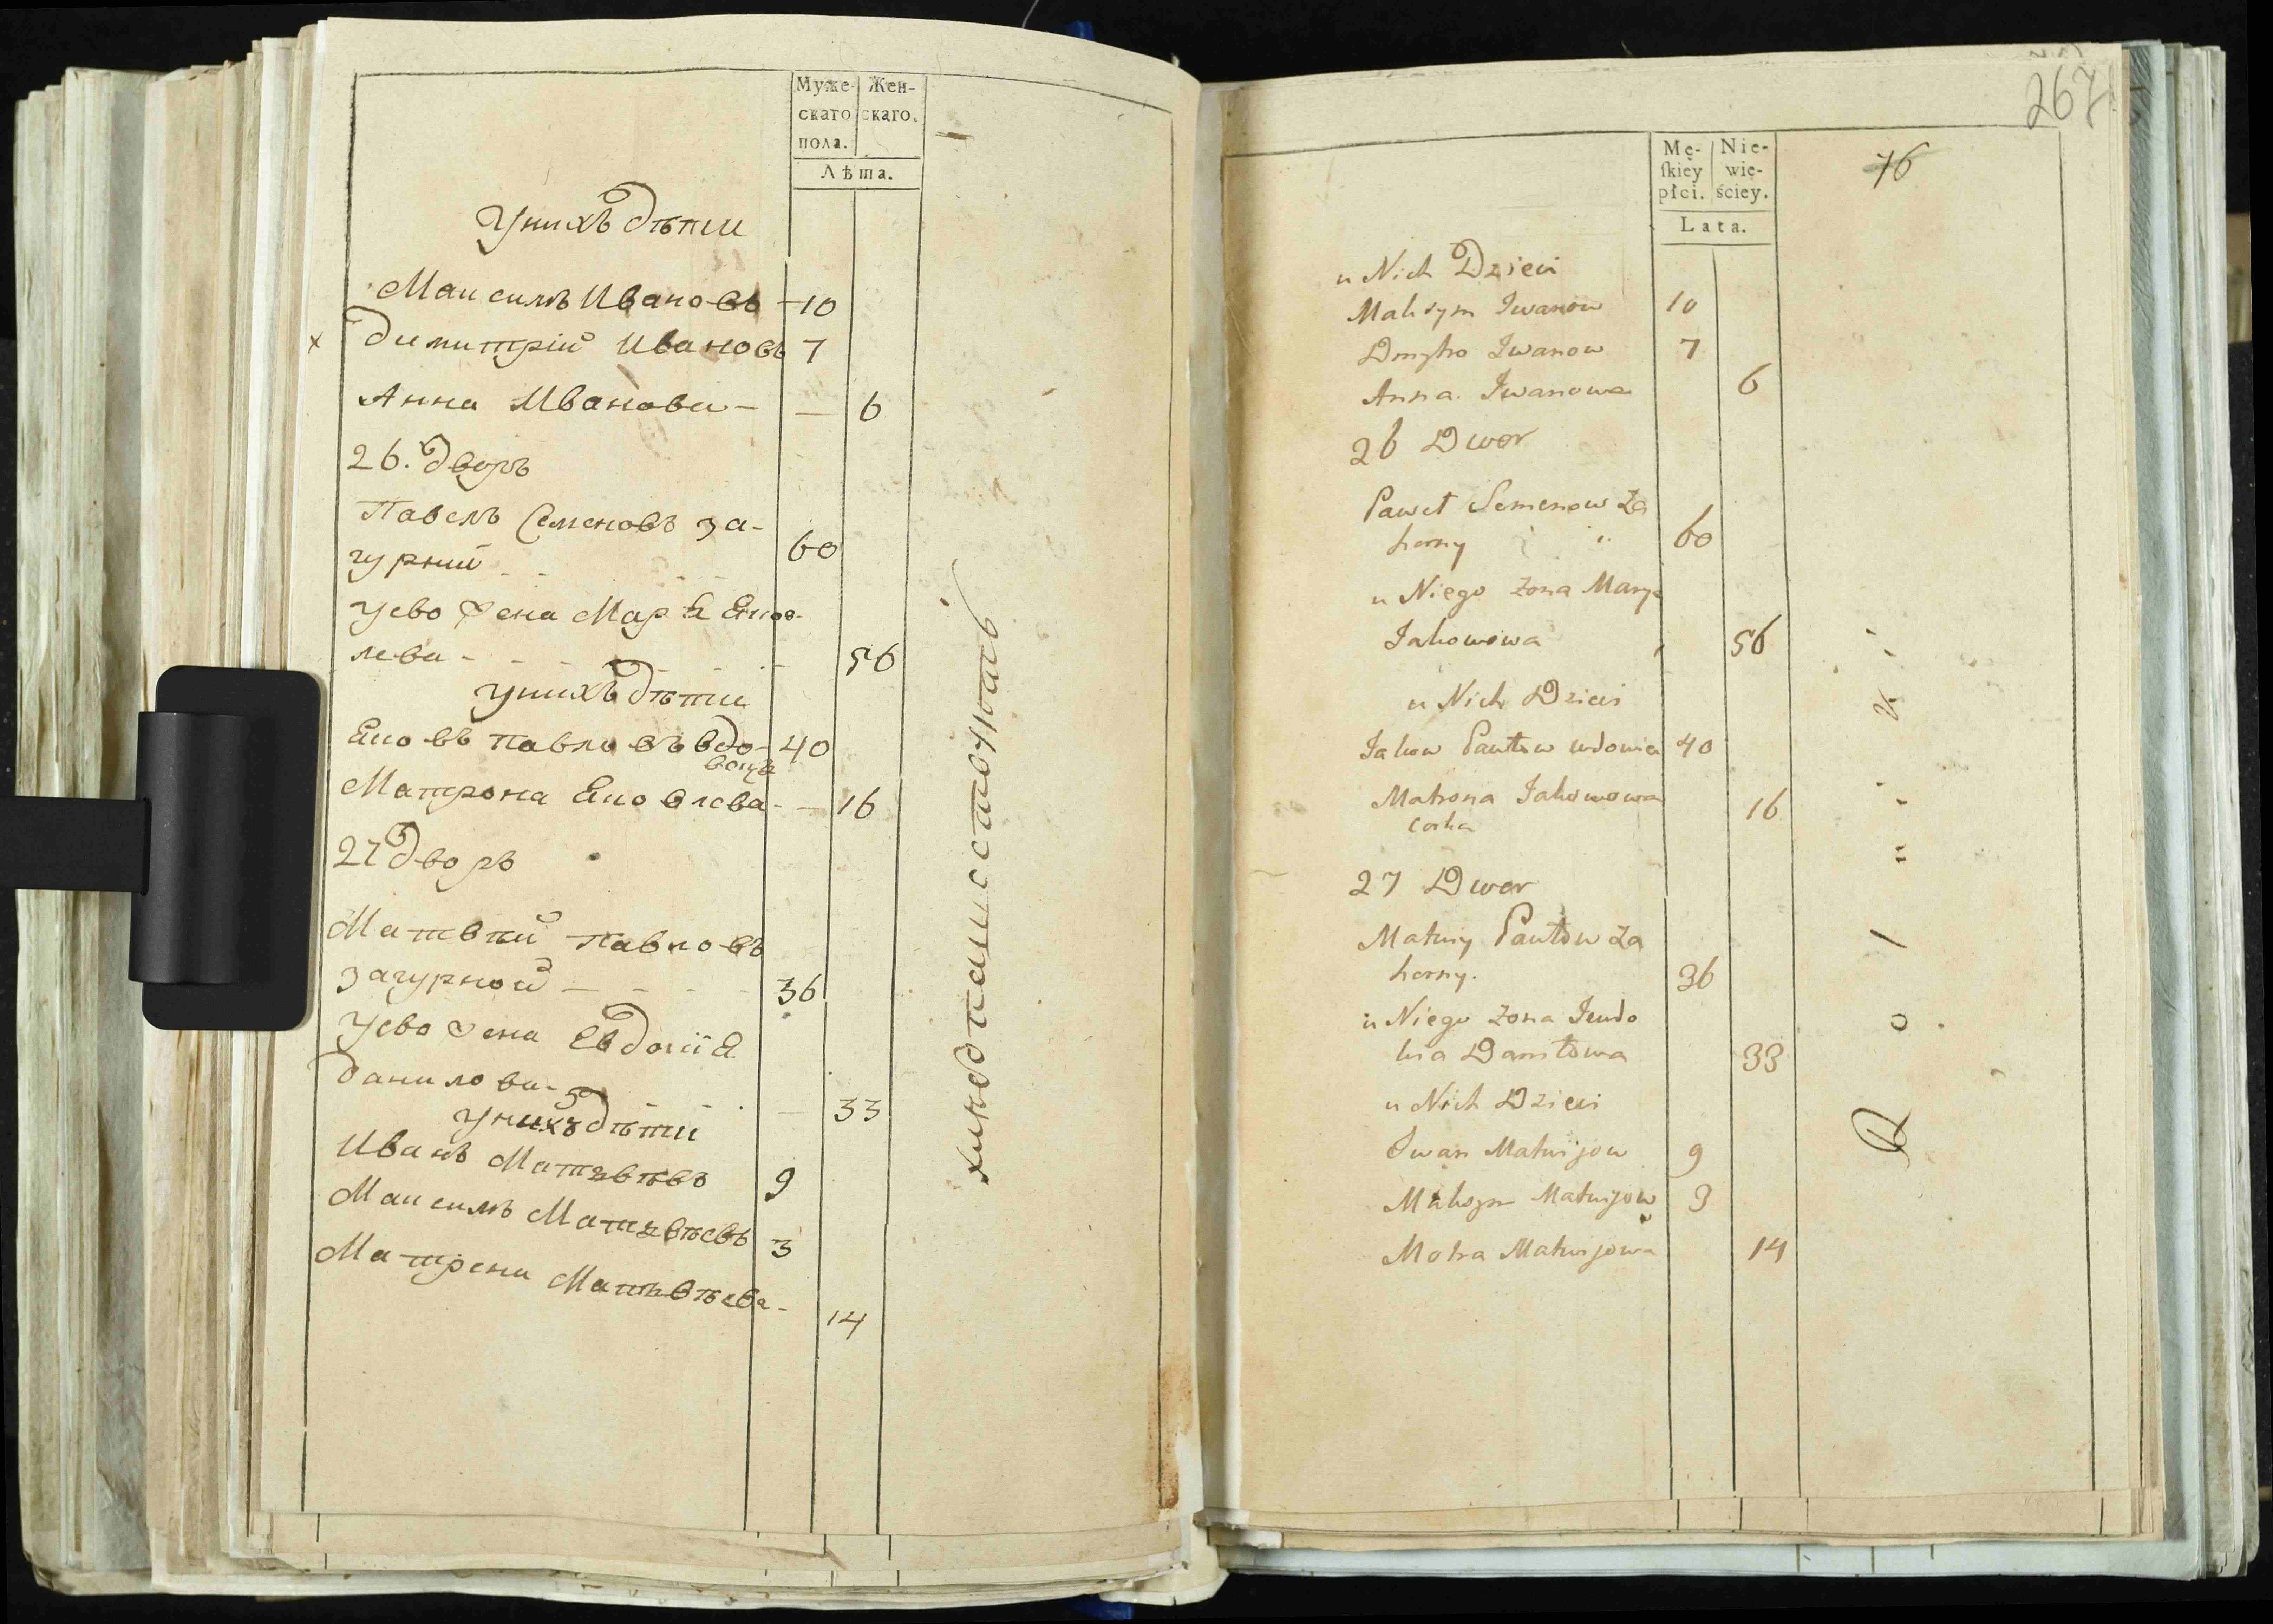 Муже- Жен-
скаго скаго.
пола.
Лѣта.
У нихъ дѣти
Максимъ Ивановъ 10
х Димитрій Ивановъ 7
Анна Иванова - — 6
26. дворъ
Павелъ Семеновъ За-
гурный 60
У ево жена Марья Яков-
лева - 56
У нихъ дѣти
Яковъ Павловъ вдо- 40
вецъ
Матрона Яковлева - — 16
27 дворъ
Матвѣй Павловъ
Загурной — 36
У ево жена Евдокія
Данилова - — 33
У нихъ дѣти
Иванъ Матвѣевъ 9
Максимъ Матвѣевъ 3
Матрена Матвѣева - 14
267
76
Mę- Nie-
skiey wie-
płci. ściey.
Lata.
u Nich Dzieci
Maksym Iwanow 10
Dmytro Iwanow 7
Anna Iwanowa 6
26 Dwor
Paweł Semenow Za
horny 60
u Niego zona Marya
Jakowowa 56
u Nich Dzieci
Jakow Pawłow wdowiec 40
Matrona Jakowowa 16
corka
27 Dwor
Matwiy Pawłow Za
horny. 36
u Niego zona Jewdo
kia Daniłowa 33
u Nich Dzieci
Iwan Matwijow 9
Maksym Matwijow 3
Motra Matwijowa 14